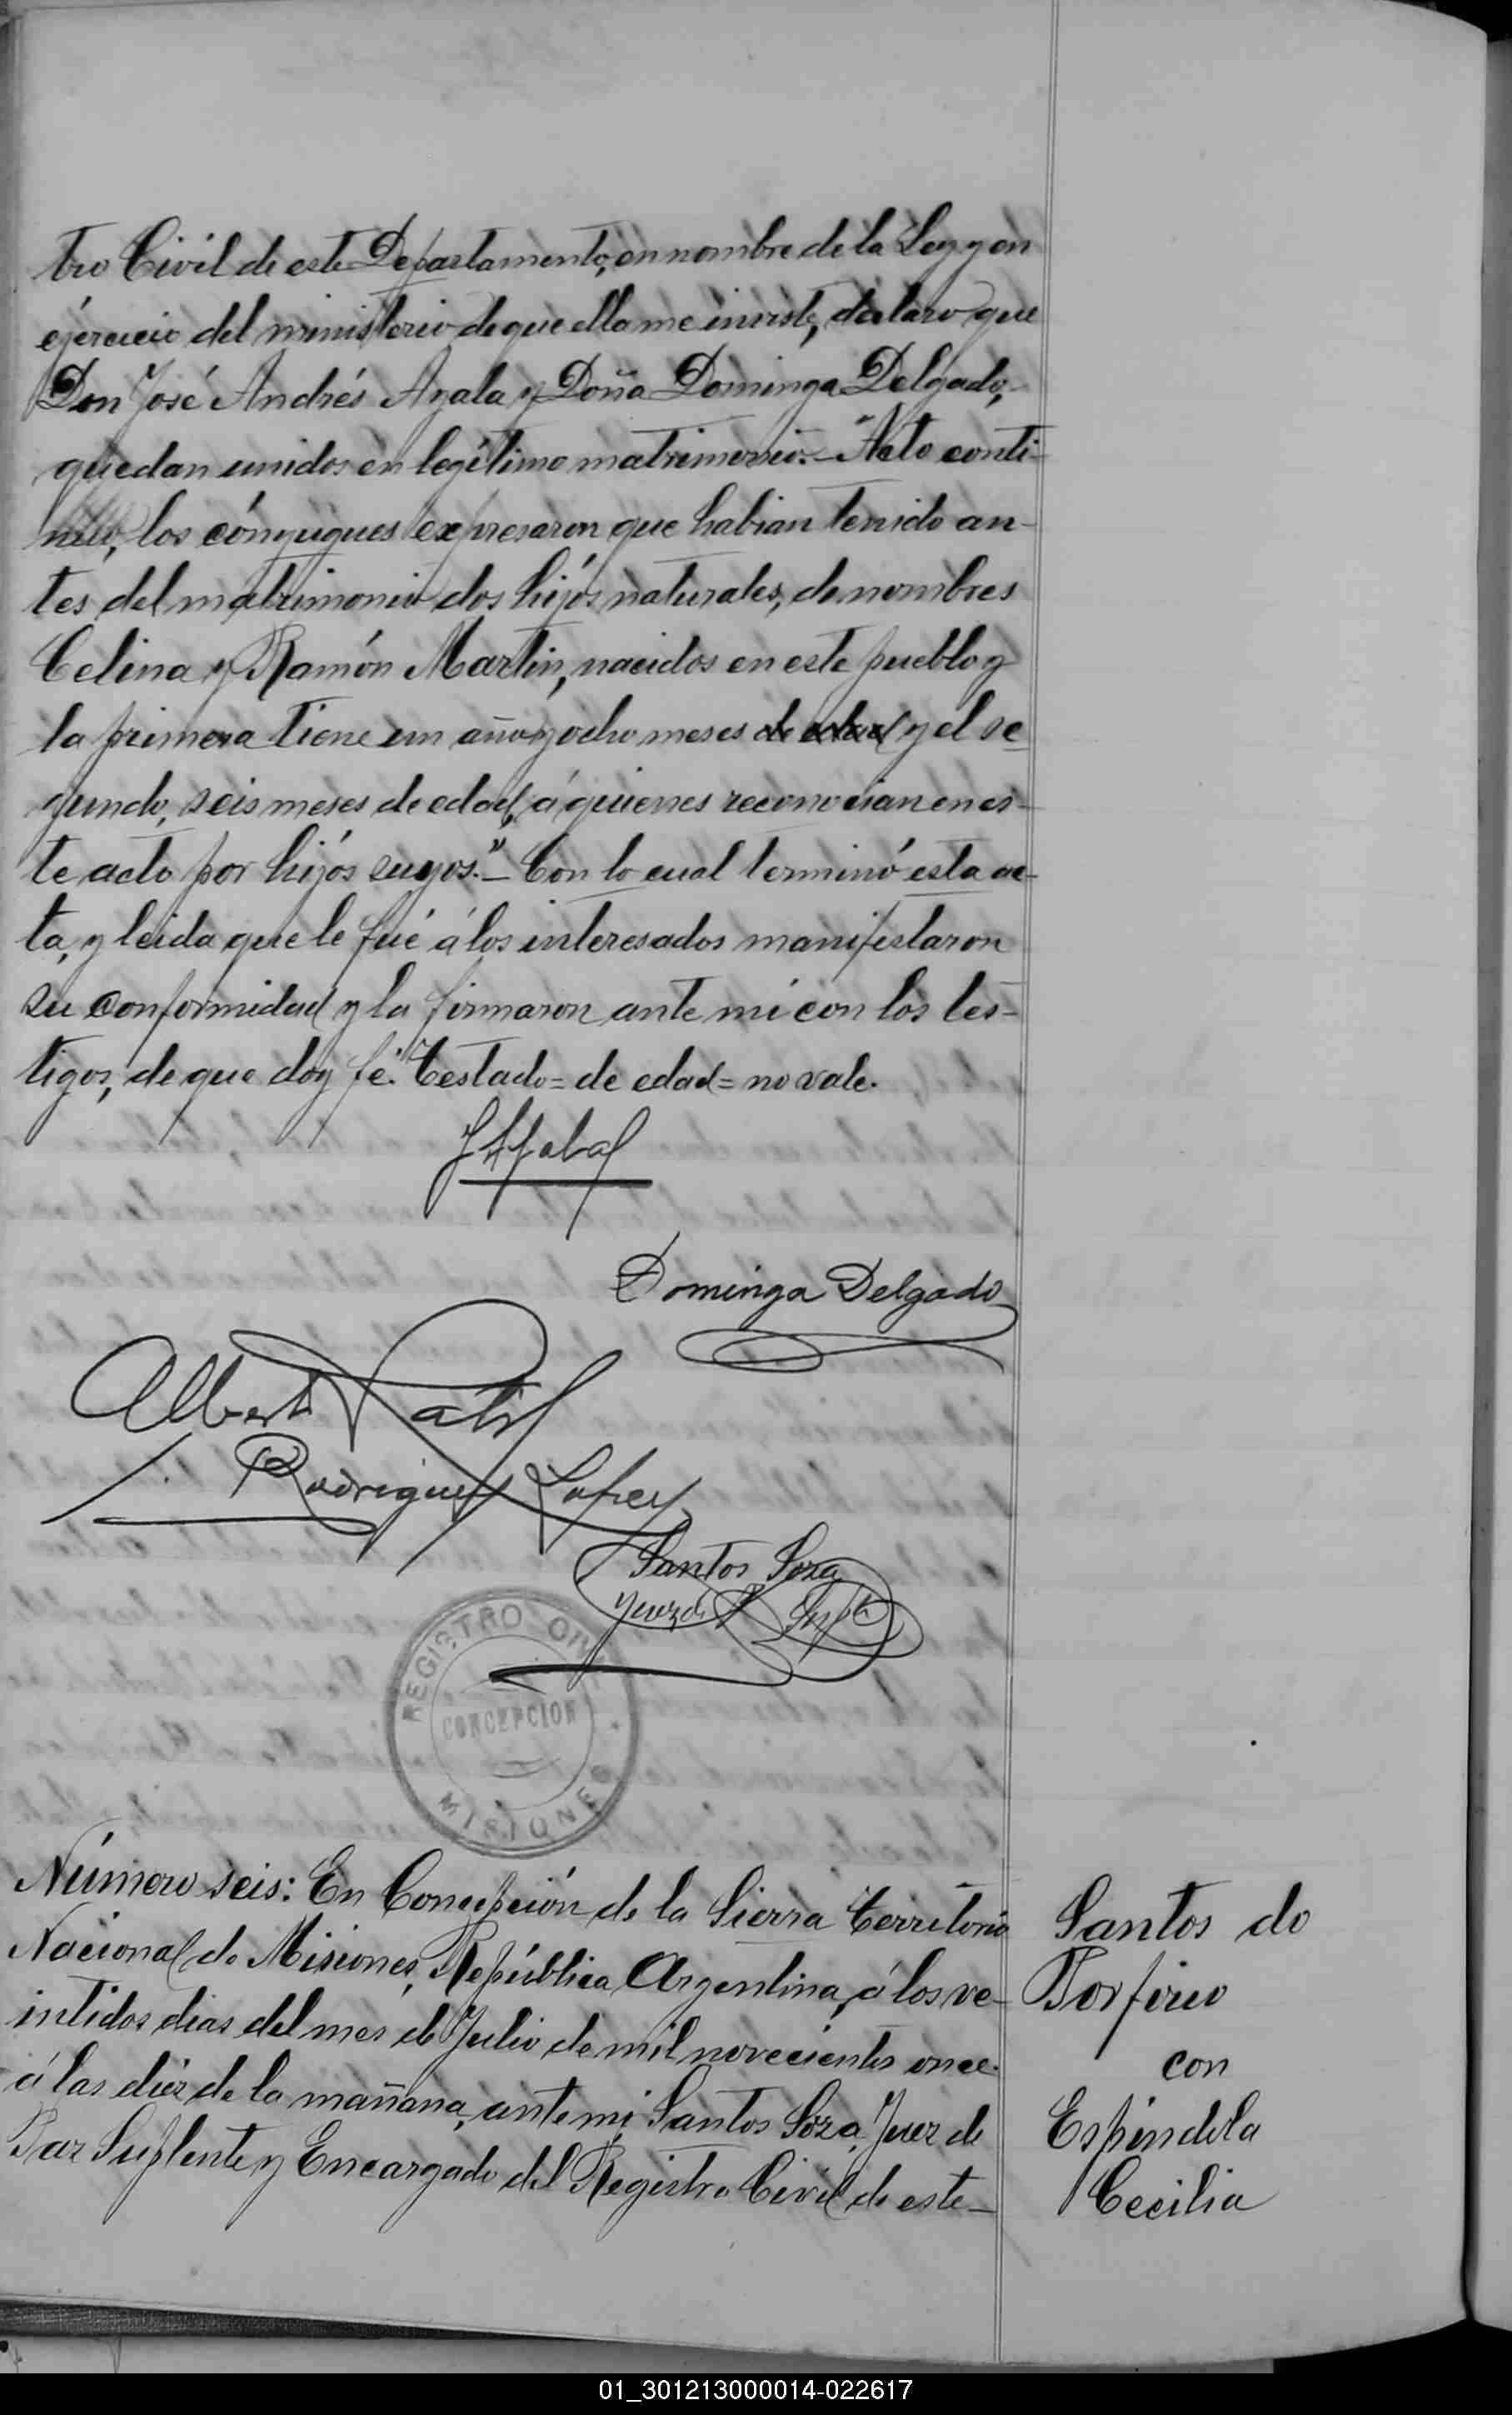 tro Civil de este Departamento, en nombre de la Ley y en
ejercicio del ministerio de que ella me inviste, declaro que
Don José Andrés Ayala y Doña Dominga Delgado,
quedan unidos en legítimo matrimonio.- "Acto conti-
nuo, los cónyugues expresaron que habian tenido an-
tes del matrimonio dos hijos naturales, de nombres
Celina y Ramón Martin, nacidos en este pueblo y
la primera tiene un año y ocho meses de edad y el se
gundo, seis meses de edad, á quienes reconocian en es-
te acto por hijos suyos."- Con lo cual terminó esta ac-
ta, y leida que le fué á los interesados manifestaron
su conformidad y la firmaron ante mi con los tes-
tigos, de que doy fé. Testado = de edad = no vale.
Dominga Delgado
Albert
Rodriguez Lopez
Santos Soza
Juez de P Supte
REGISTRO CIVIL
CONCEPCION
MISIONES
Número seis: En Concepción de la Sierra Territorio
Nacional de Misiones, República Argentina, á los ve-
intidos dias del mes de Julio de mil novecientos once.
á las diez de la mañana, ante mi, Santos Soza, Juez de
Paz Suplente y Encargado del Registro Civil de este-
Santos do
Porfirio
con
Espindola
Cecilia
01_301213000014-022617